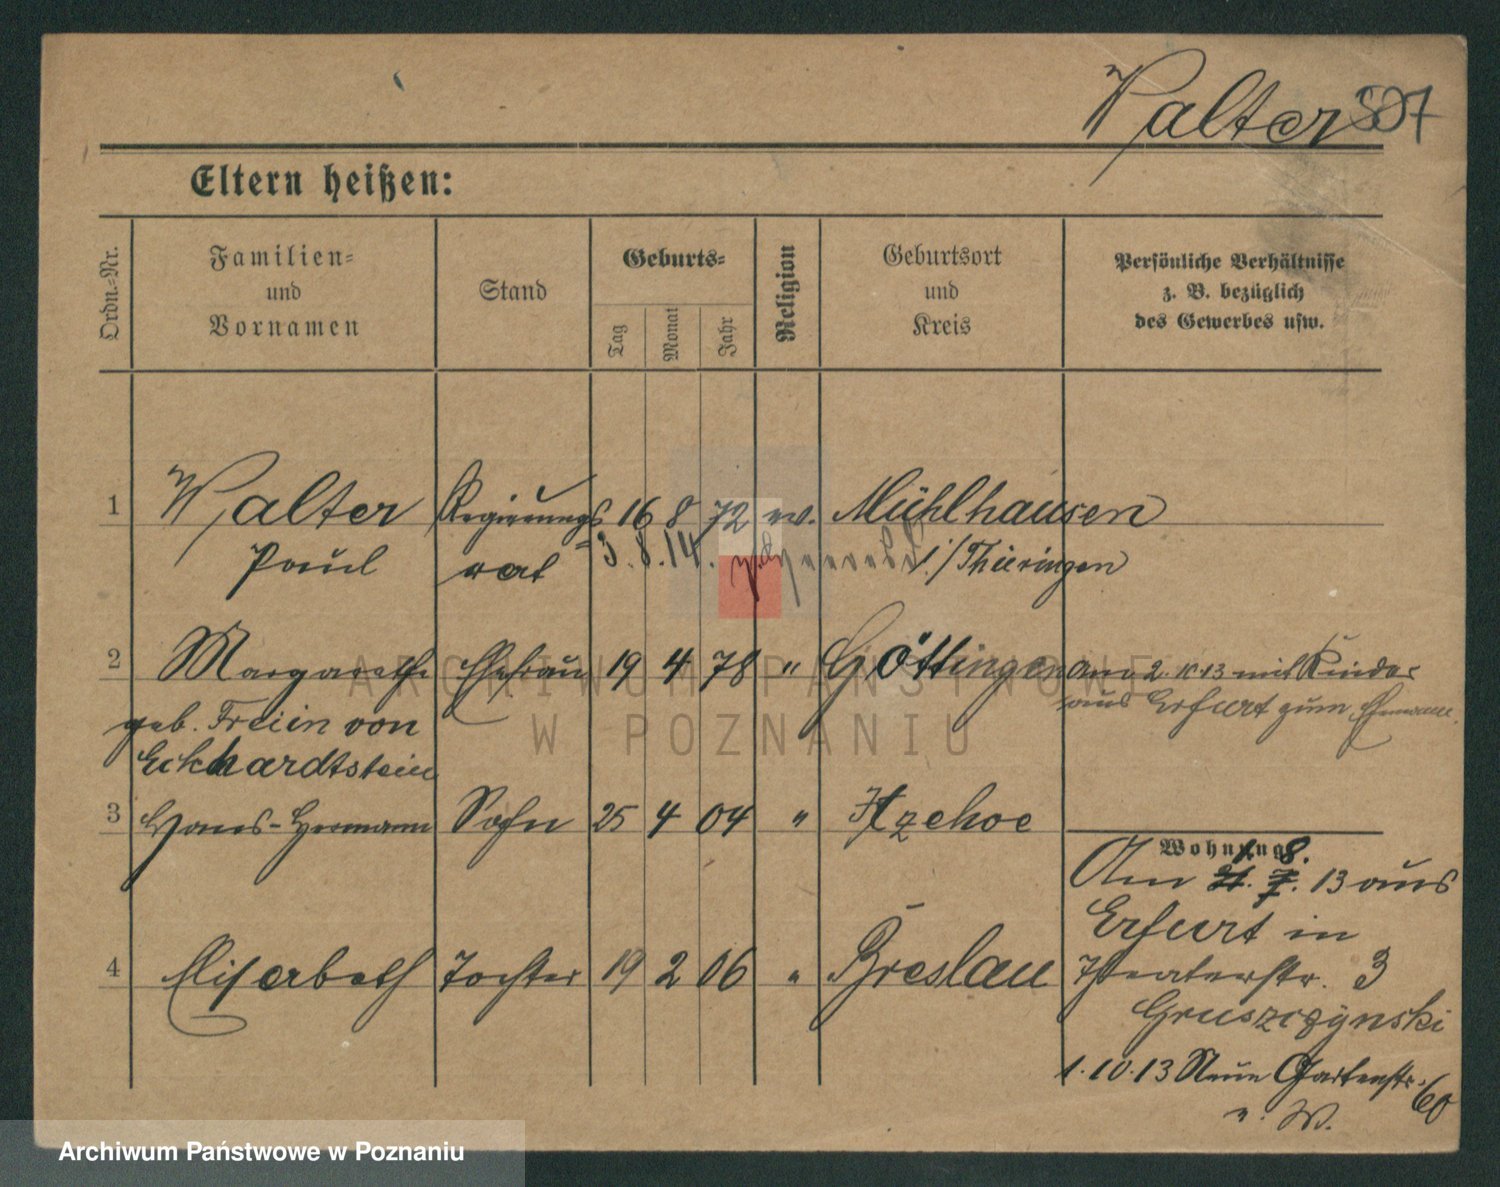 Walter 507
Eltern heißen:
Ordn.-Nr.
Familien-
und
Vornamen
Stand
Geburts-
Tag
Monat
Jahr
Religion
Geburtsort
und
Kreis
Persönliche Verhältnisse
z. B. bezüglich
des Gewerbes usw.
1 Walter Regierungs 16 8 72 ev. Mühlhausen
Paul rat 3.8.14. i./Thüringen
2 Margarethe Ehefrau 19 4 78 " Göttingen am 2.10.13 mit Kinder
aus Erfurt zum Ehemann.
geb. Freiin von
Eckhardtstein
3 Hans-Hermann Sohn 25 4 04 " Itzehoe
Wohnung
1. 8.
Am 21. 7. 13 aus
Erfurt in
4 Elisabeth Tochter 19 2 06 " Breslau Theaterstr. 3
Gruszczynski
1.10.13 Neue Gartenstr. 60
e. W.
ARCHIWUM PAŃSTWOWE
W POZNANIU
Archiwum Państwowe w Poznaniu